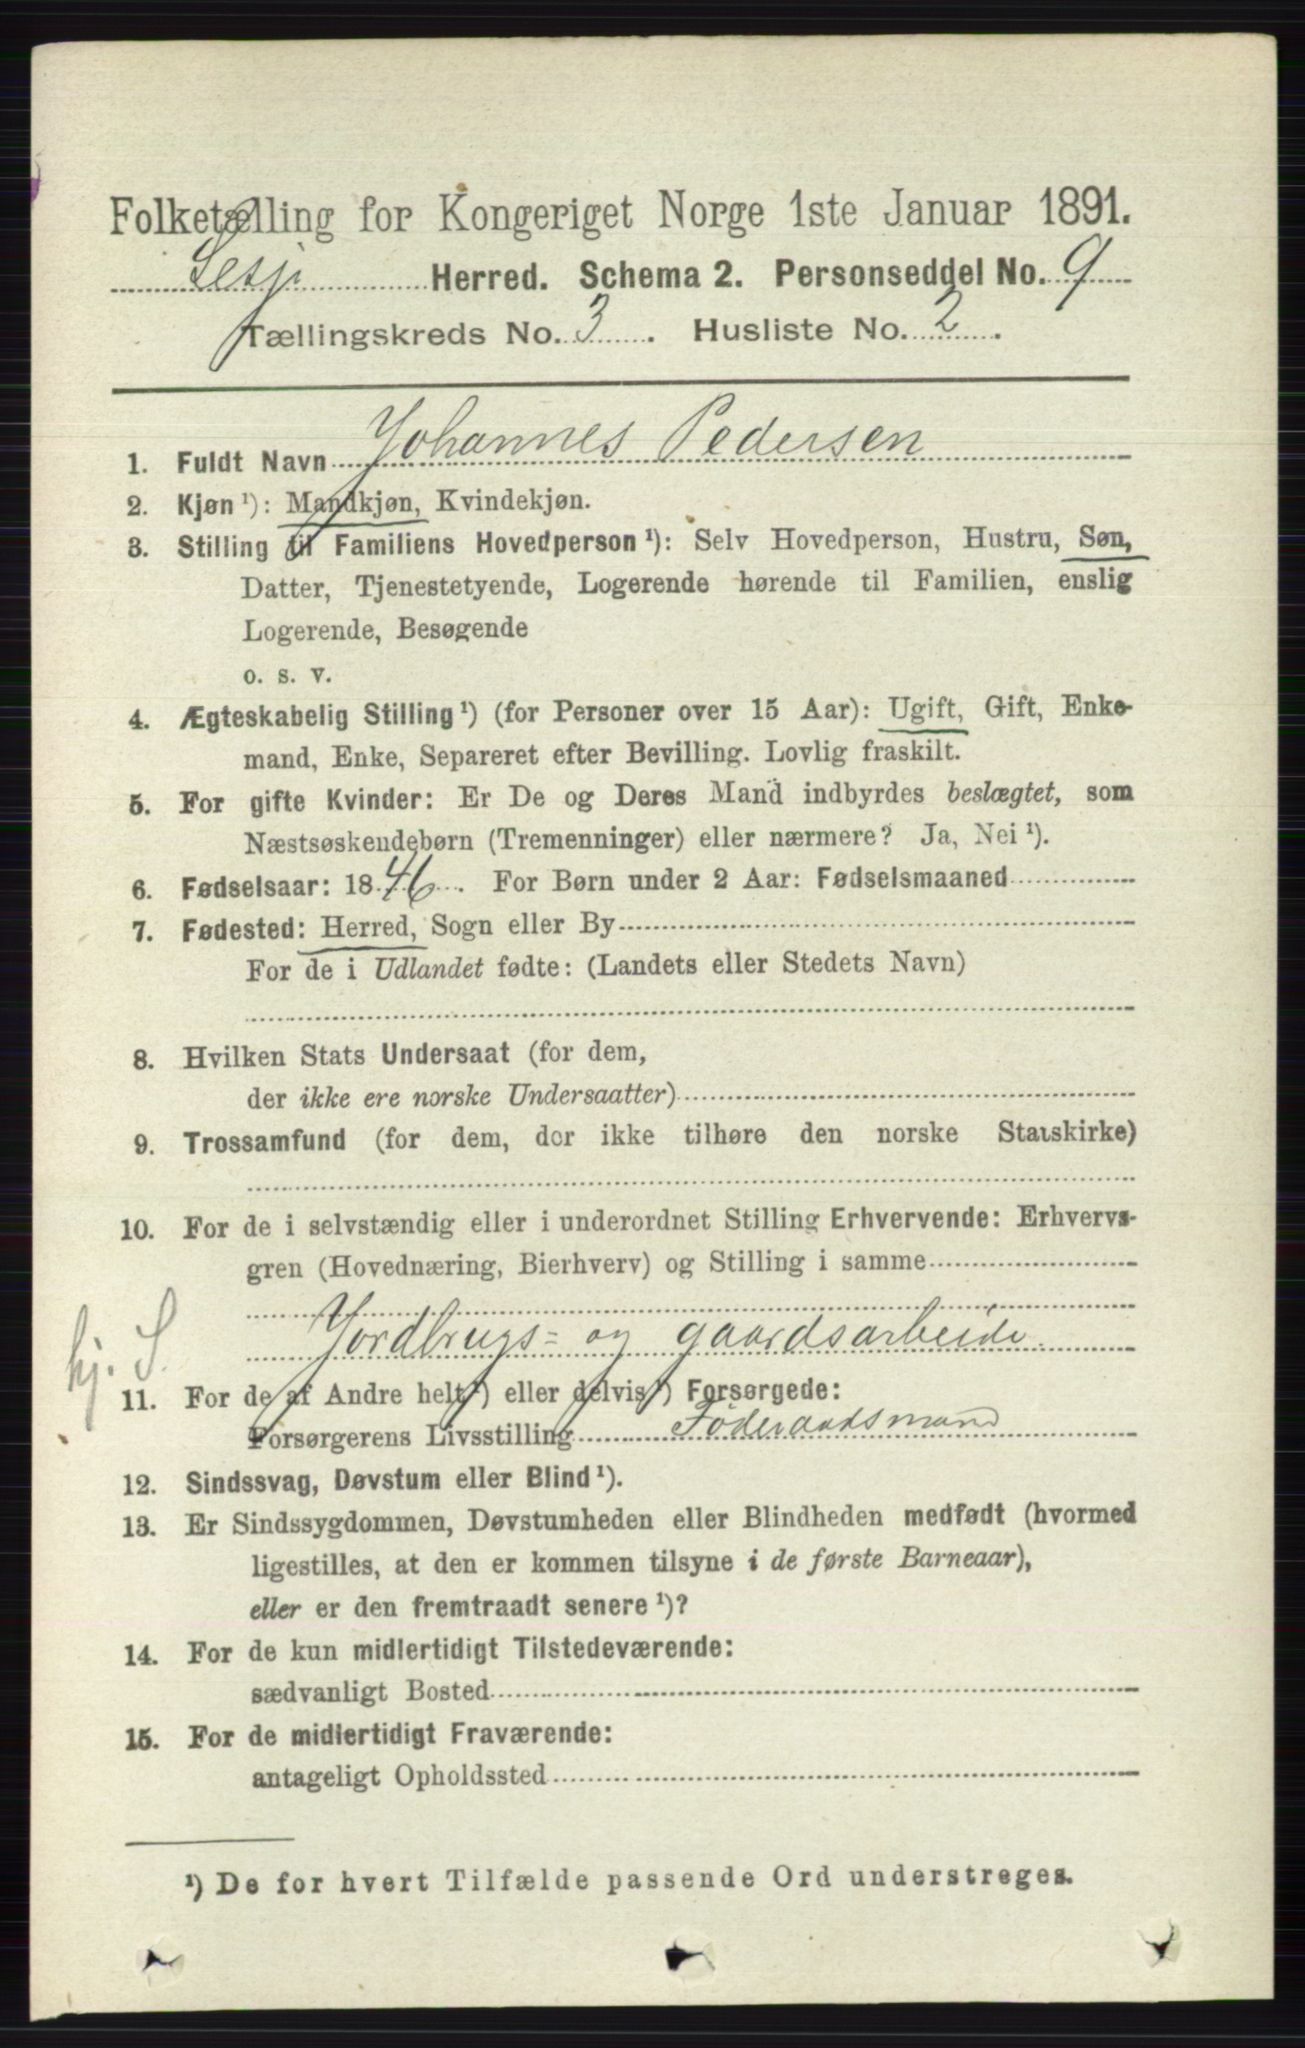 Folketælling for Kongeriget Norge 1ste Januar 1891.
Lesje Herred. Schema 2. Personseddel No. 9
Tællingskreds No. 3. Husliste No. 2.
1. Fuldt Navn Johannes Pedersen
2. Kjøn ¹): Mandkjøn, Kvindekjøn.
3. Stilling til Familiens Hovedperson ¹): Selv Hovedperson, Hustru, Søn,
Datter, Tjenestetyende, Logerende hørende til Familien, enslig
Logerende, Besøgende
o. s. v.
4. Ægteskabelig Stilling ¹) (for Personer over 15 Aar): Ugift, Gift, Enke-
mand, Enke, Separeret efter Bevilling. Lovlig fraskilt.
5. For gifte Kvinder: Er De og Deres Mand indbyrdes beslægtet, som
Næstsøskendebørn (Tremenninger) eller nærmere? Ja, Nei ¹).
6. Fødselsaar: 1846. For Børn under 2 Aar: Fødselsmaaned
7. Fødested: Herred, Sogn eller By
For de i Udlandet fødte: (Landets eller Stedets Navn)
8. Hvilken Stats Undersaat (for dem,
der ikke ere norske Undersaatter)
9. Trossamfund (for dem, der ikke tilhøre den norske Statskirke)
10. For de i selvstændig eller i underordnet Stilling Erhvervende: Erhvervs-
gren (Hovednæring, Bierhverv) og Stilling i samme
hj. S. Jordbrugs- og gaardsarbeide.
11. For de af Andre helt ¹) eller delvis ¹) Forsørgede:
Forsørgerens Livsstilling Føderaadsmand
12. Sindssvag, Døvstum eller Blind ¹).
13. Er Sindssygdommen, Døvstumheden eller Blindheden medfødt (hvormed
ligestilles, at den er kommen tilsyne i de første Barneaar),
eller er den fremtraadt senere ¹)?
14. For de kun midlertidigt Tilstedeværende:
sædvanligt Bosted
15. For de midlertidigt Fraværende:
antageligt Opholdssted
¹) De for hvert Tilfælde passende Ord understreges.